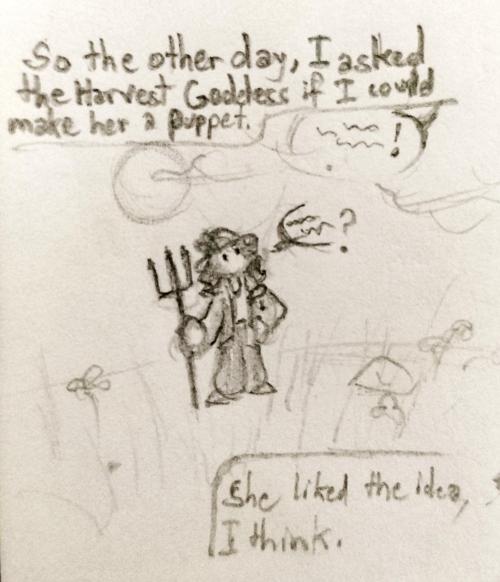 So the other day, I asked
the Harvest Goddess if I could
make her a puppet.
!
?
She liked the idea,
I think.